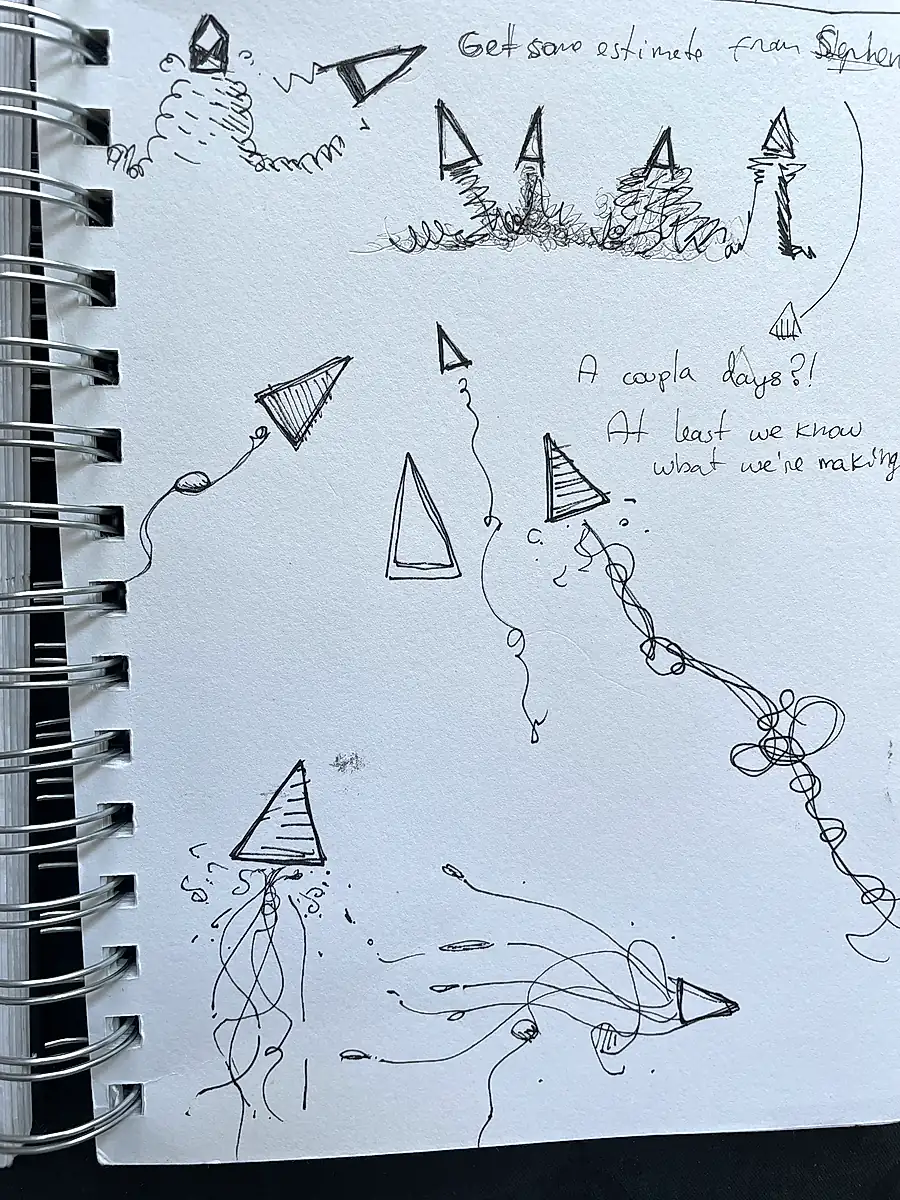 Get some estimate from Stephen
A coupla days?!
At least we know
what we're making